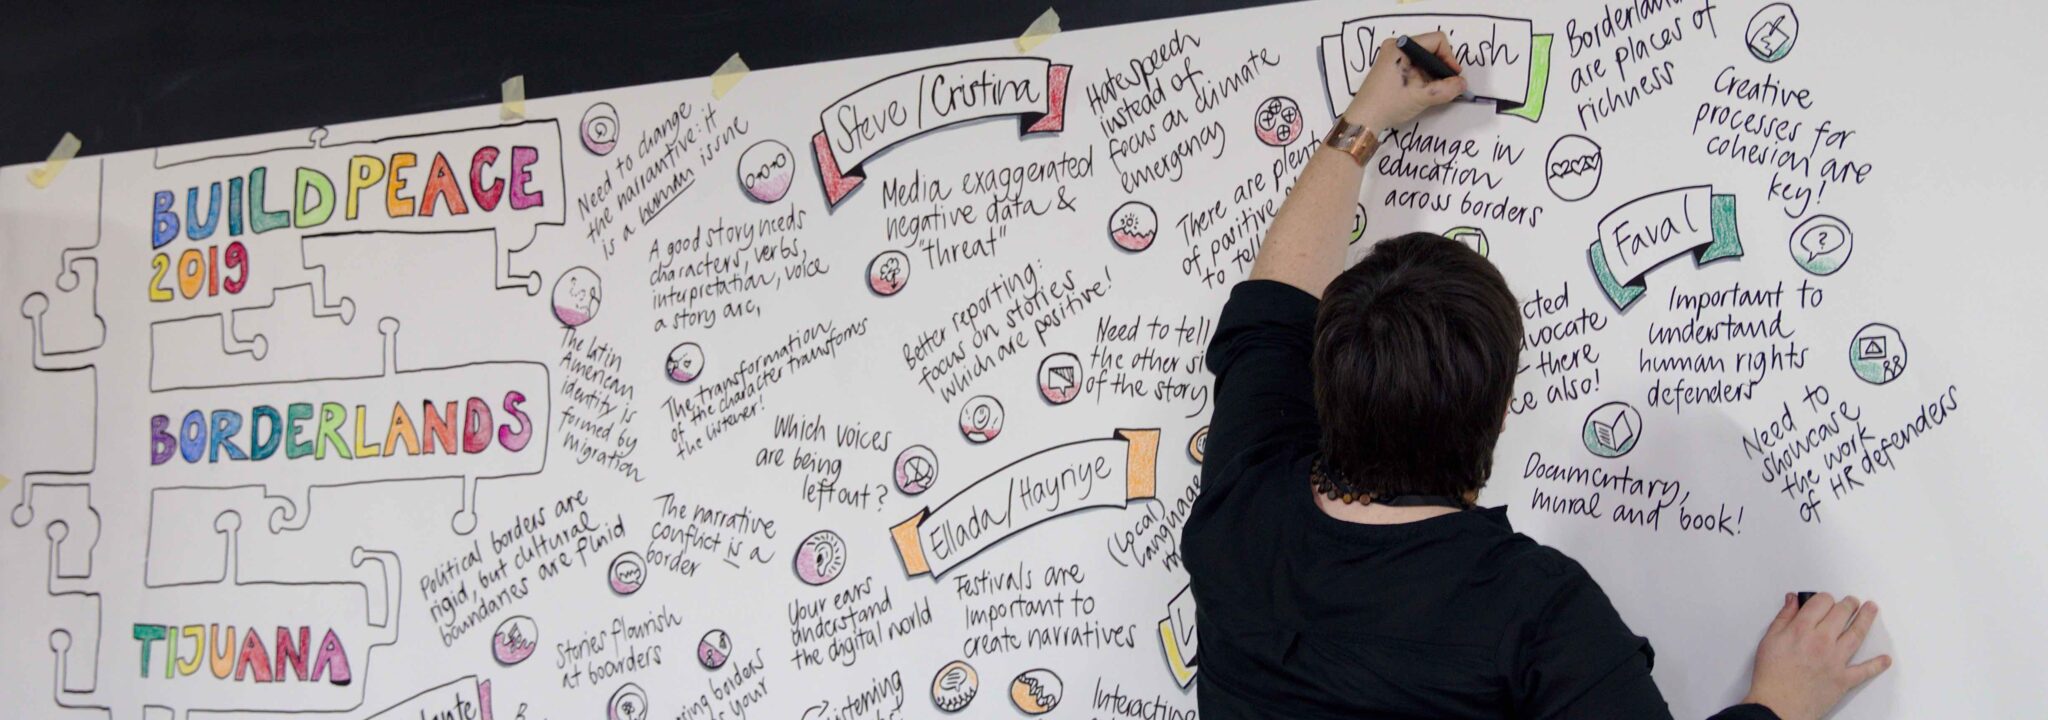 BUILD PEACE
2019
BORDERLANDS
TIJUANA
Need to change
the narrantive: it
is a human issue
A good story needs
characters, verbs,
interpretation, voice
a story arc,
The latin
American
identity is
formed by
migration
The transformation
of the character transforms
the listener!
Political borders are
rigid, but cultural
boundaries are fluid
The narrative
conflict is a
border
Stories flourish
at boarders
Which voices
are being
left out?
Your ears
understand
the digital world
Steve/Cristina
Media exaggerated
negative data &
"threat"
Hatespeech
instead of
focus on climate
emergency
There are
of positive
to tell
Better reporting:
focus on stories
which are positive!
Need to tell
the other
of the story
Ellada/Hayriye
Festivals are
important to
create narratives
(Local)
language
Interacting
borders
your
in
education
across borders
are places of
richness
Creative
processes for
cohesion are
key!
Faval
Important to
understand
human rights
defenders
there
also!
Documentary,
mural and book!
Need to
showcase
the work
of HR defenders